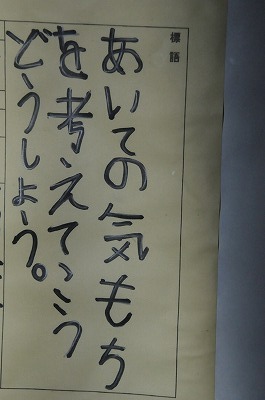 標語
あいての気もち
を考えてこう
どうしよう。